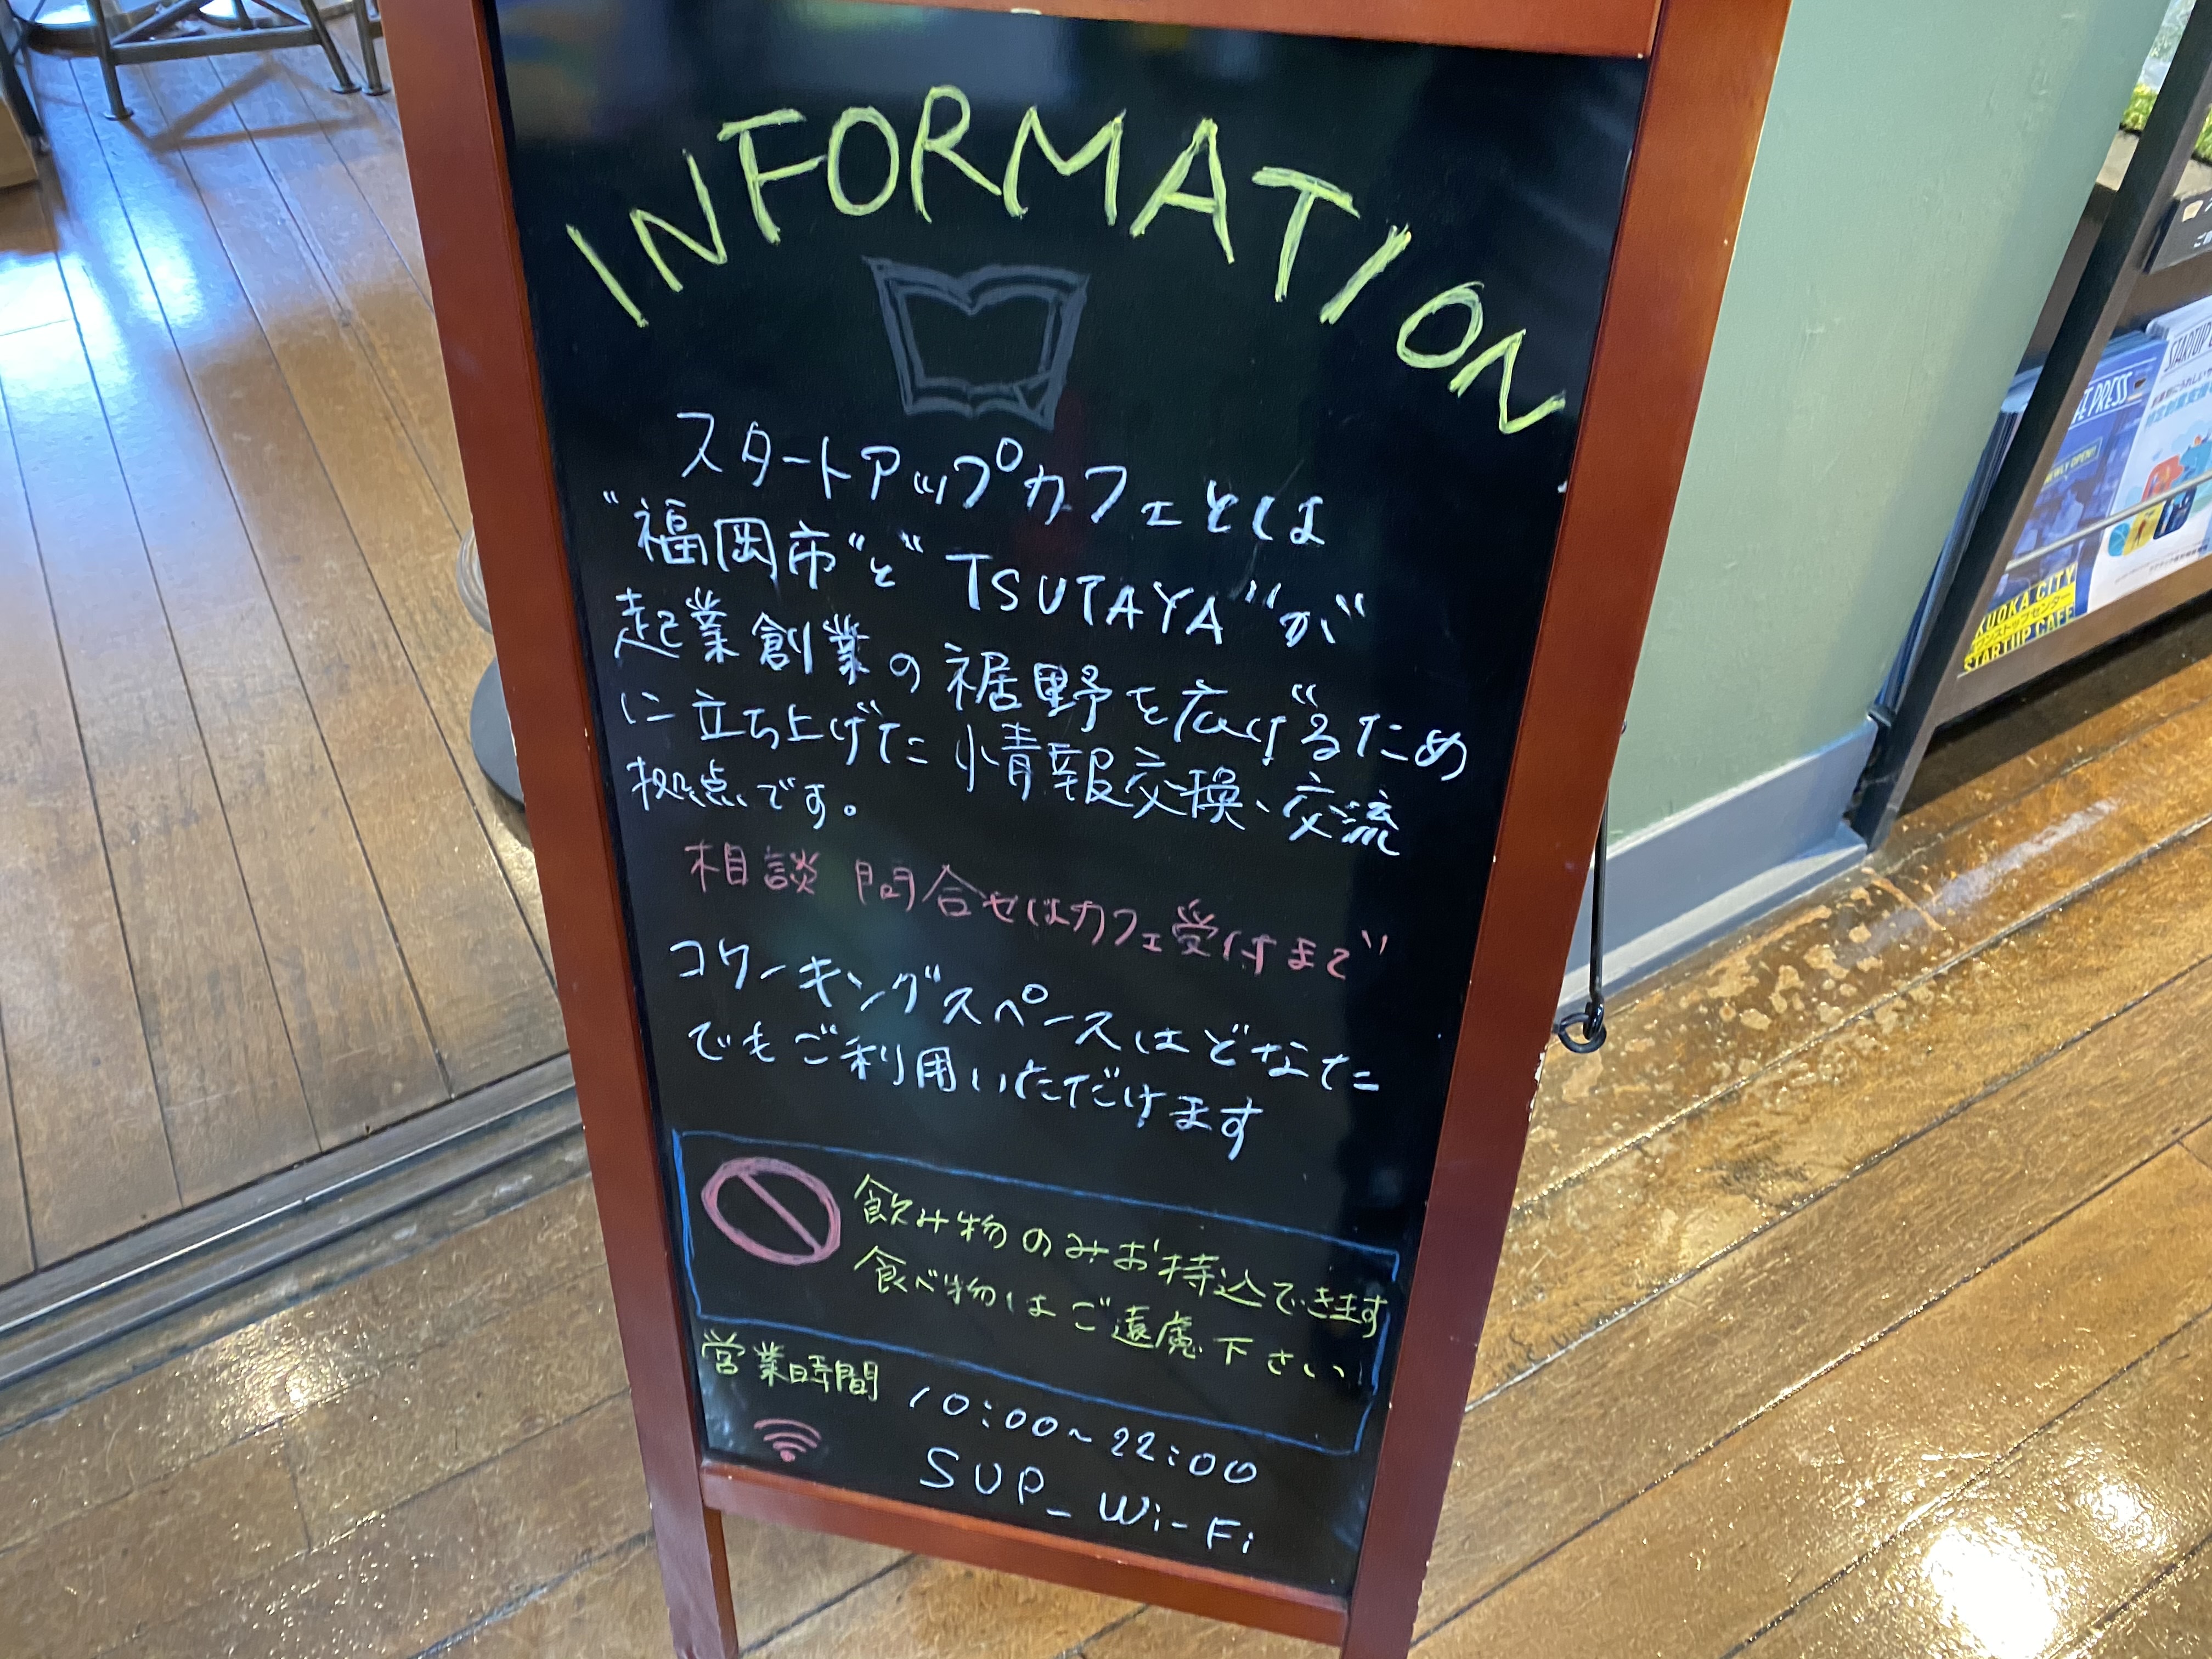 INFORMATION
スタートアップカフェとは
"福岡市"と"TSUTAYA"が
起業創業の裾野を広げるため
に立ち上げた情報交換、交流
拠点です。
相談 問合せはカフェ受付まで
コワーキングスペースはどなた
でもご利用いただけます
飲み物のみお持込できます
食べ物はご遠慮下さい
営業時間 10:00~22:00
SUP_Wi-Fi
PRESS
NEWLY OPEN!
STARTUP
KUOKA CITY
STARTUP CAFE